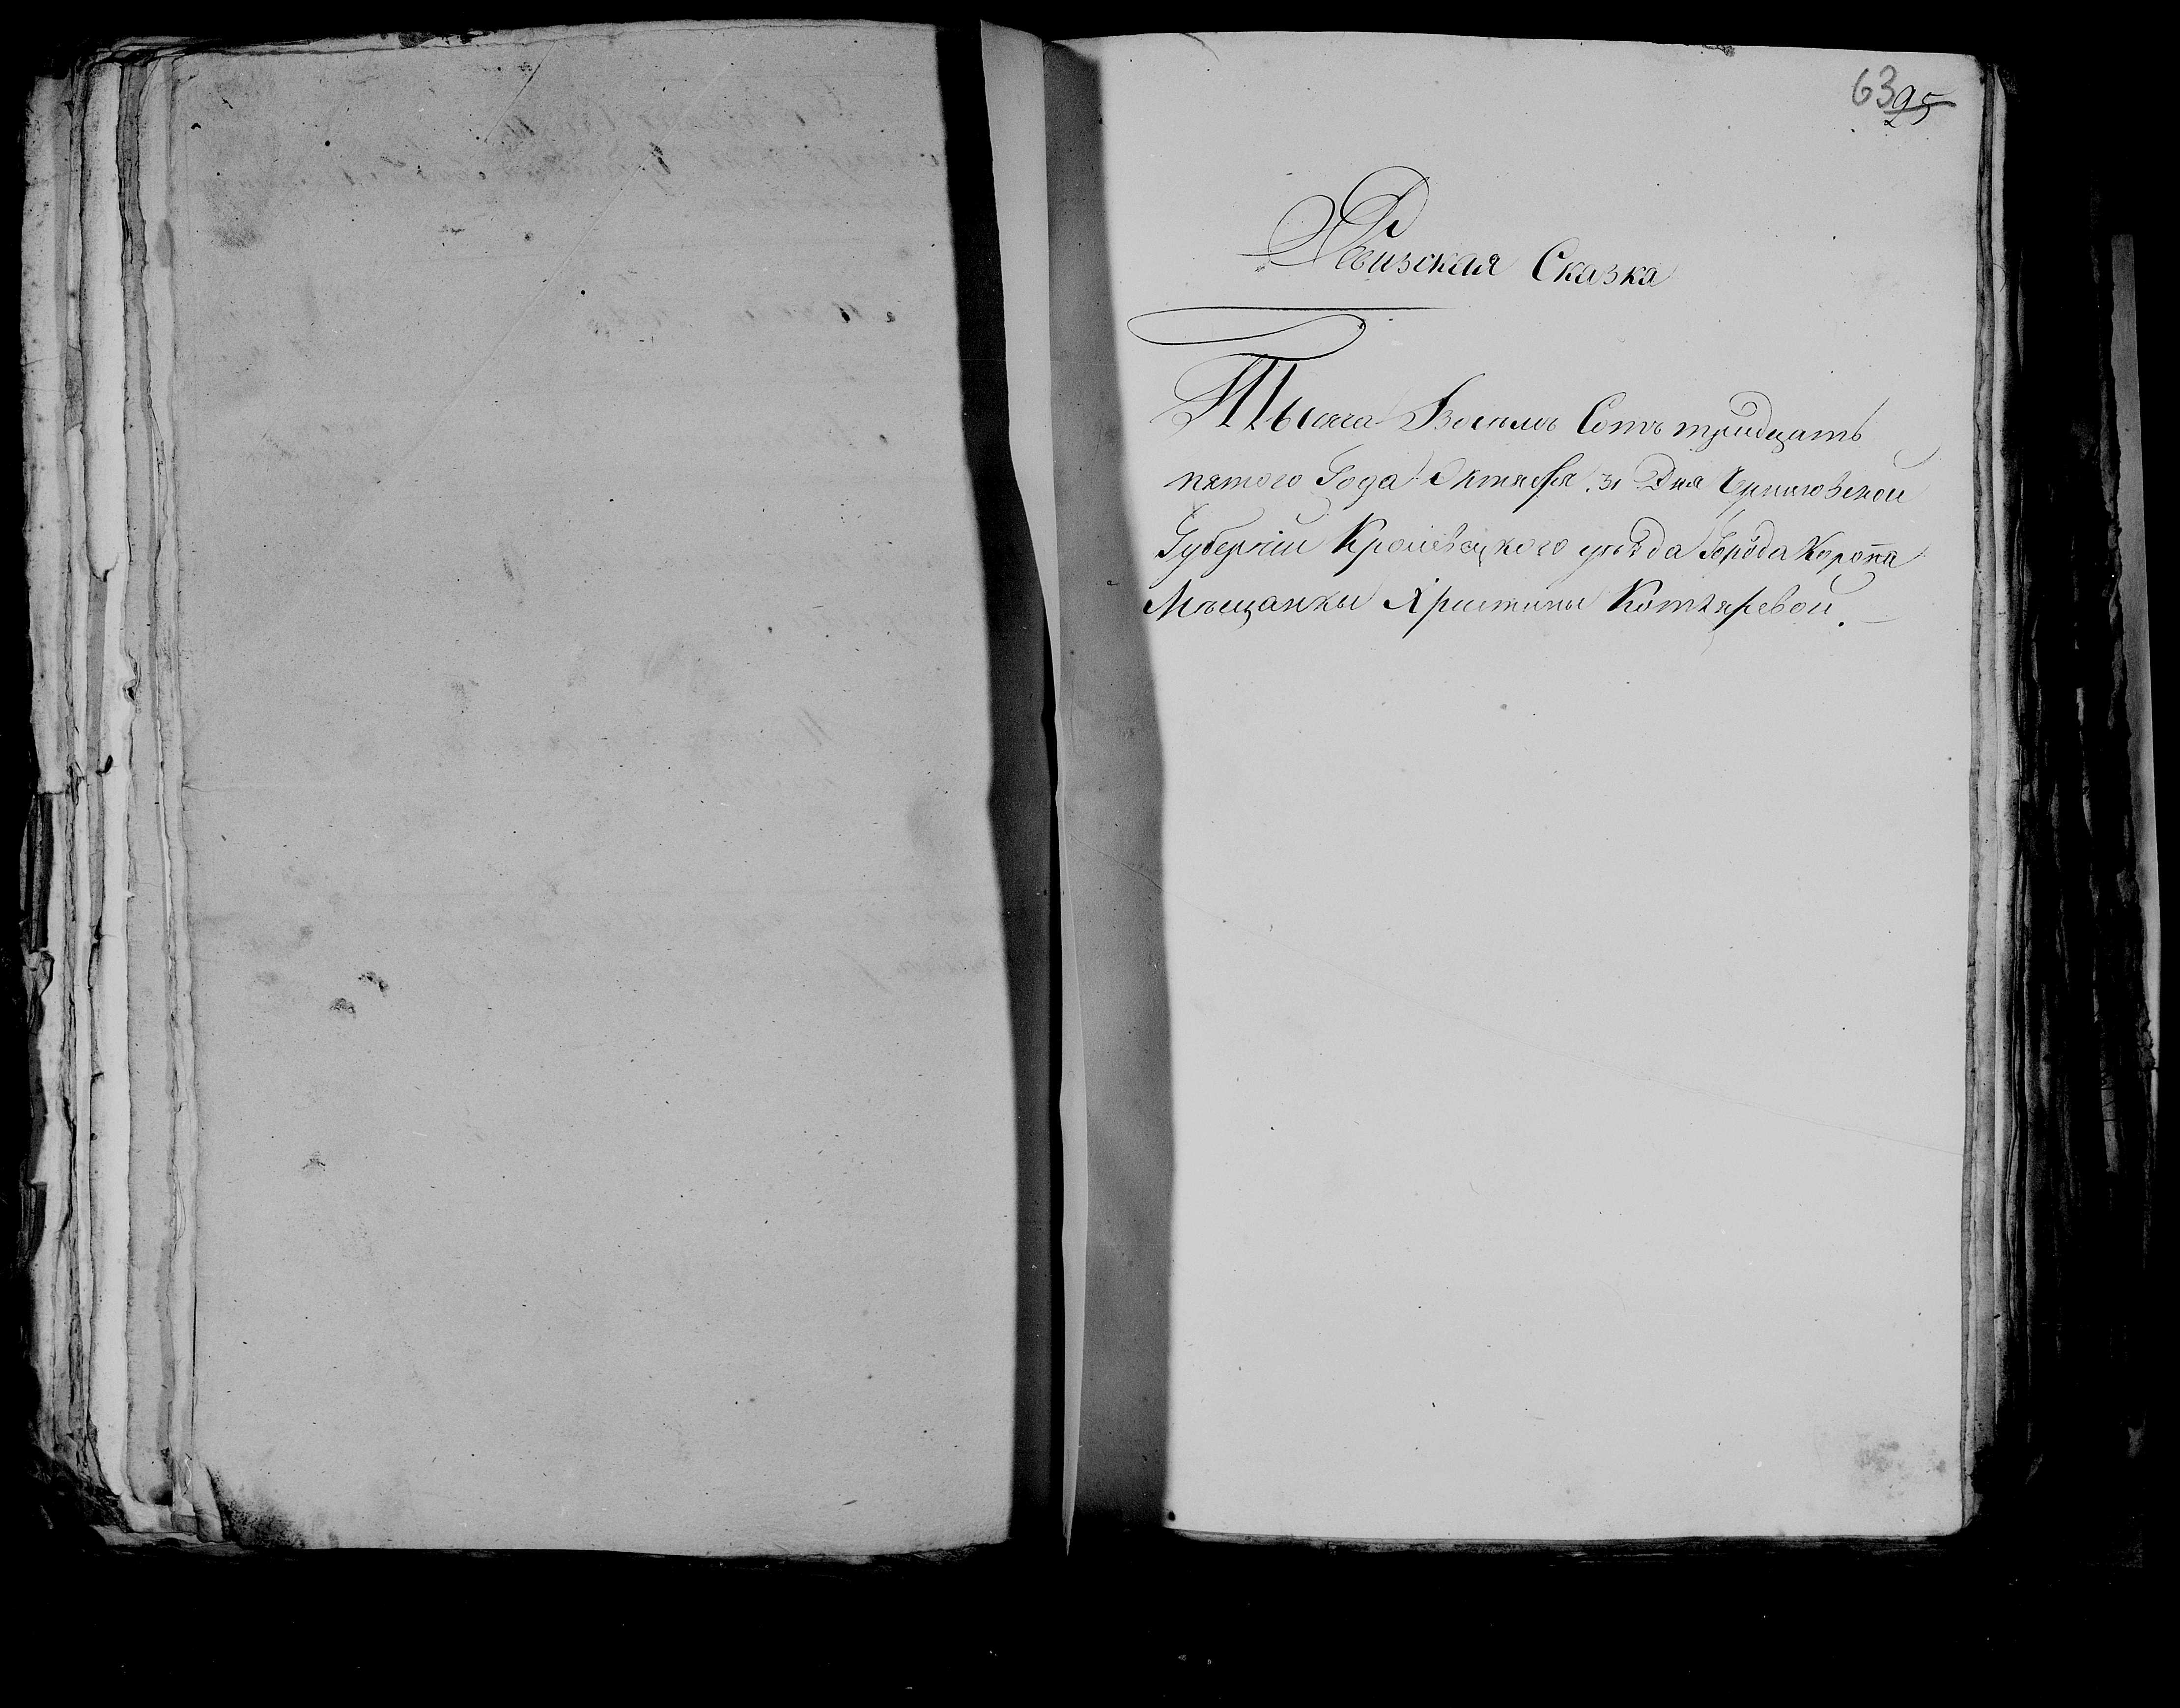 63 95
Ревизская Сказка
Тысяча Восемь Сотъ тридцать
пятого Года Октября 31 Дня Черниговской
Губерніи Кролевецкого уѣзда Города Коропа
Мѣщанки Христины Котляревой.